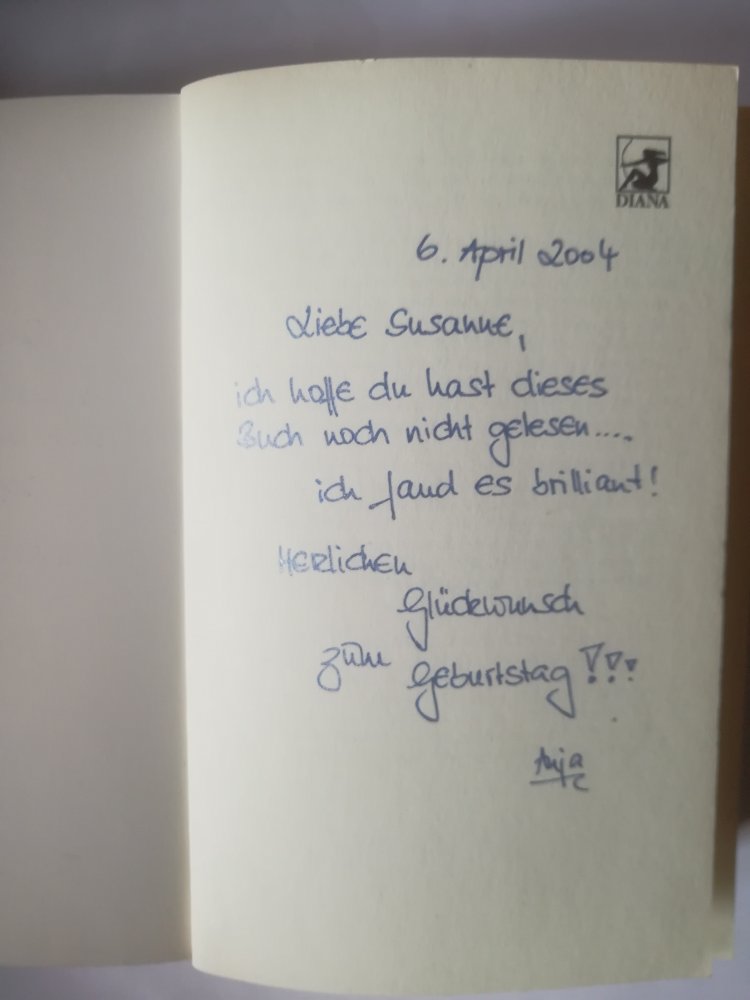 DIANA
6. April 2004
Liebe Susanne,
ich hoffe du hast dieses
Buch noch nicht gelesen....
ich fand es brilliant!
Herlichen
Glückwunsch
zum Geburtstag!!!
Anja